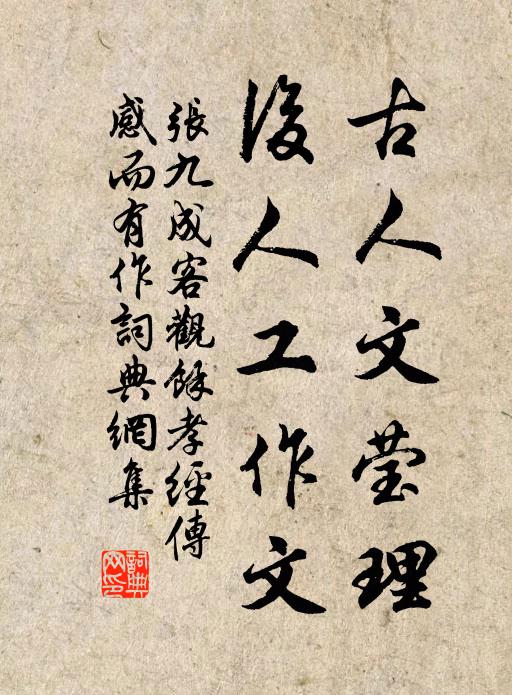 古人文莹理
後人工作文
張九成客觀餘孝經傳
感而有作詞典網集
詞典网印